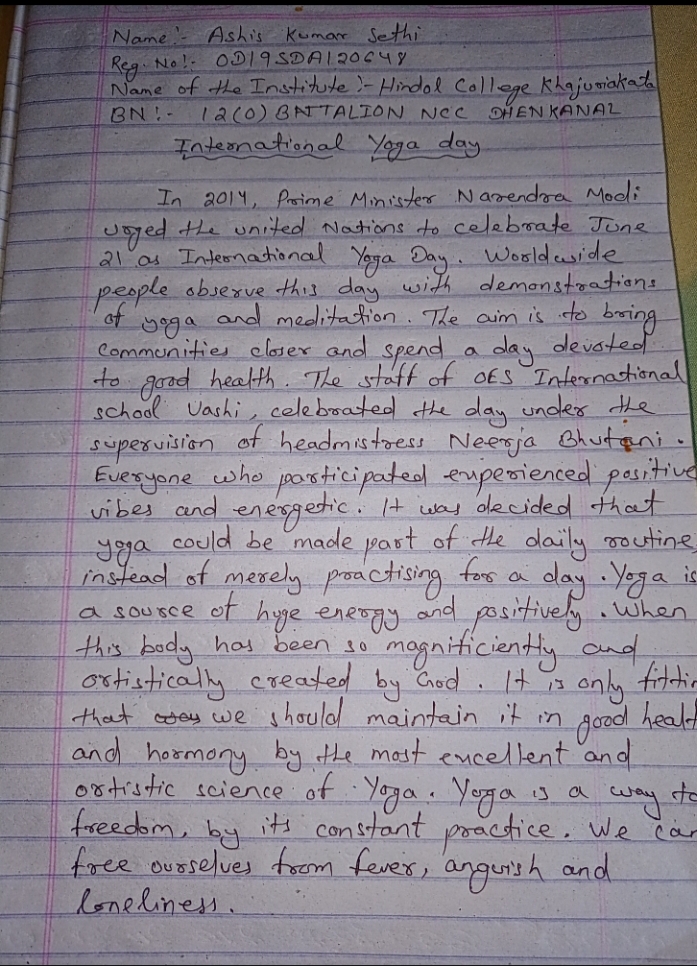 Name:- Ashis Kumar Sethi
Reg. No:- OD19SDA120648
Name of the Institute:- Hindol College Khajuriakata
BN:- 12(O) BATTALION NCC DHENKANAL
International Yoga day
In 2014, Prime Minister Narendra Modi
urged the united Nations to celebrate June
21 as International Yoga Day. Worldwide
people observe this day with demonstrations
of yoga and meditation. The aim is to bring
Communities closer and spend a day devoted
to good health. The staff of OES International
school Vashi, celebrated the day under the
supervision of headmistress Neerja Bhutani.
Everyone who participated experienced positive
vibes and energetic. It was decided that
yoga could be made part of the daily routine
instead of merely practising for a day. Yoga is
a source of huge energy and positively. When
this body has been so magnificiently and
artistically created by God. It is only fittin
that we should maintain it in good healt
and hormony by the most excellent and
artistic science of Yoga. Yoga is a way to
freedom, by its constant practice. We can
free ourselves from fever, anguish and
loneliness.